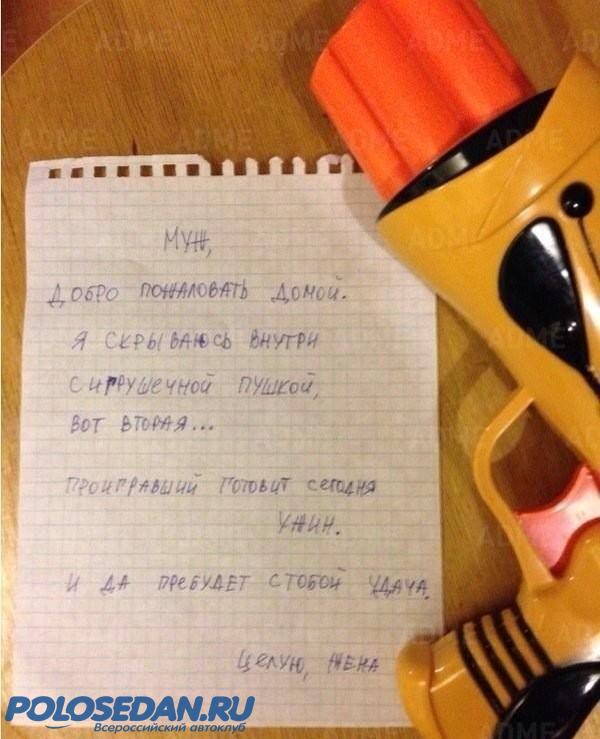 МУЖ,
ДОБРО ПОЖАЛОВАТЬ ДОМОЙ.
Я СКРЫВАЮСЬ ВНУТРИ
С ИГРУШЕЧНОЙ ПУШКОЙ,
ВОТ ВТОРАЯ...
ПРОИГРАВШИЙ ГОТОВИТ СЕГОДНЯ
УЖИН.
И ДА ПРЕБУДЕТ С ТОБОЙ УДАЧА.
ЦЕЛУЮ, ЖЕНА
POLOSEDAN.RU
Всероссийский автоклуб
ADME